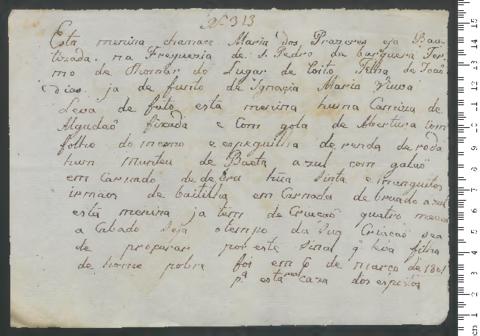 Nº 313
Esta menina chamace Maria dos Prazeres esa Bau-
tizada na Freguezia de S. Pedro da barqueira Ter-
mo de do Lugar de Coito Filha de Joaõ
dias ja de funto de Ignacia Maria Viuva
Leva de fato esta menina huna Camiza de
Algudaõ fixada e com gola de Abertura com
folho do mesmo e espeguilha de renda de roda
hum munteu de Baeta azul com galaõ
em Carnado de debru hũa sinta e manguitos
irmaos de baitilha em Carnada debruado azul
esta menina ja tem de Criaçaõ quatro mezes
a Cabado seja o tempo da sua Criaçaõ sea
de proparar por este sinal q hea filha
de home pobre foi em 6 de março de 1801
pª esta caza dos espostos